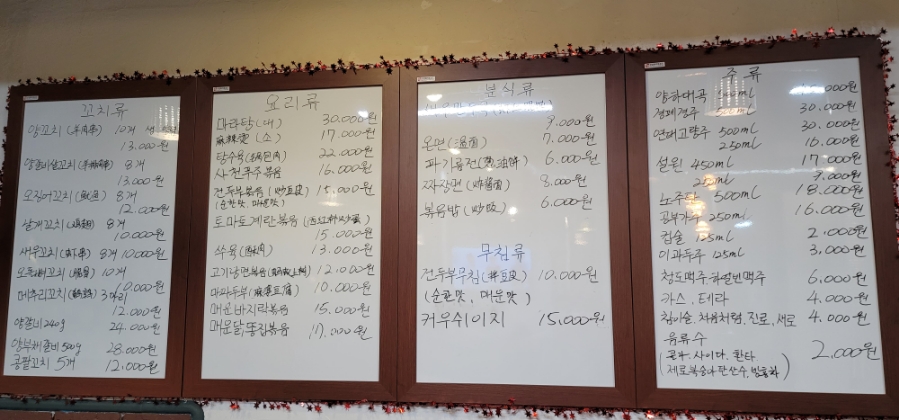 꼬치류
양꼬치(羊肉串) 10개
13.000원
양갈비살꼬치 8개
13.000원
오징어꼬치(鱿鱼) 8개
12.000원
날개꼬치 8개
10.000원
새우꼬치 8개 10000원
10개
10.000원
메추리꼬치 3마리
12.000원
양갈비 240g
24.000원
500g
28.000원
콩팥꼬치 5개
12.000원
요리류
마라탕(대) 30.000원
麻辣烫(소) 17.000원
탕수육 22.000원
사천후추볶음 16.000원
건두부볶음(炒豆皮) 15.000원
(순한맛 매운맛)
토마토계란볶음
15.000원
수육 13.000원
고기 볶음 12.000원
마파두부(麻婆豆腐) 10.000원
매운바지락볶음 15.000원
매운닭똥집볶음 17.000원
분식류
9.000원
온면(温面) 7.000원
파기름전(葱油饼) 6.000원
짜장면(炸酱面) 8.000원
볶음밥(炒饭) 6.000원
무침류
건두부무침(拌豆皮) 10.000원
(순한맛, 매운맛)
커우쉬이지 15.000원
주류
양하대곡
경폐경주 30.000원
연태고량주 500ml 30.000원
250ml 16.000원
설원 450ml 17.000원
250ml 9.000원
노주탄 500ml 18.000원
공부가주 250ml 16.000원
컵술 125ml 2.000원
이과두주 125ml 3.000원
청도맥주.하얼빈맥주 6.000원
카스. 테라 4.000원
참이슬. 처음처럼. 진로. 새로 4.000원
음료수
(콜라. 사이다. 환타. 2.000원